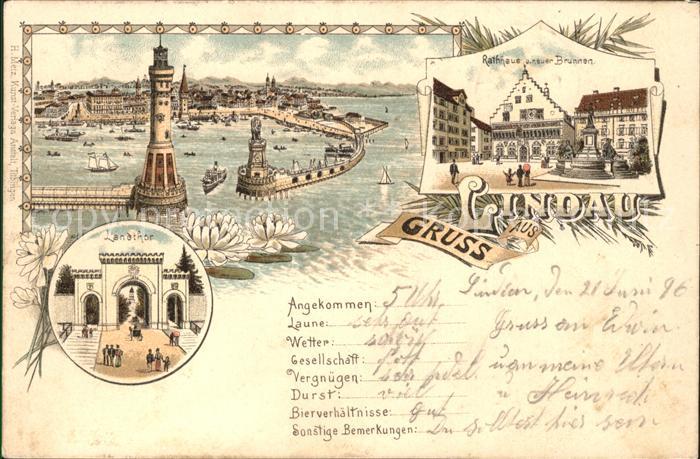 H. Metz, Kunst-Verlags-Anstalt, Tübingen.
Rathhaus u. neuer Brunnen.
LINDAU
GRUSS AUS
Landthor
Lindau, den 21 Juni 96
Angekommen: 5 Uhr
Laune: sehr gut
Gruss an Edwin
Wetter:
Gesellschaft: flott
und meine Eltern
Vergnügen: sehr fidel
Durst: viel
u Heinrich
Bierverhältnisse: Gut
Sonstige Bemerkungen: Du solltest hier sein